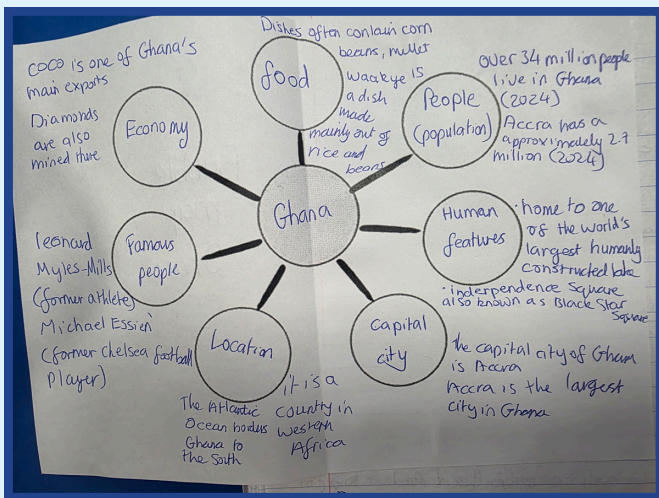 Ghana
food
Dishes often contain corn
beans, millet
waakye is
a dish
made
mainly out of
rice and
beans
People
(population)
over 34 million people
live in Ghana
(2024)
Accra has a
approximately 2.7
million (2024)
Human
features
· home to one
of the world's
largest humanly
constructed lake
· independence Square
also known as Black Star
Square
Capital
city
the capital city of Ghana
is Accra
Accra is the largest
city in Ghana
Location
it is a
country in
western
Africa
The Atlantic
Ocean borders
Ghana to
the South
Famous
people
leonard
Myles-Mills
(former athlete)
Michael Essien
(former chelsea football
player)
Economy
coco is one of Ghana's
main exports
Diamonds
are also
mined there